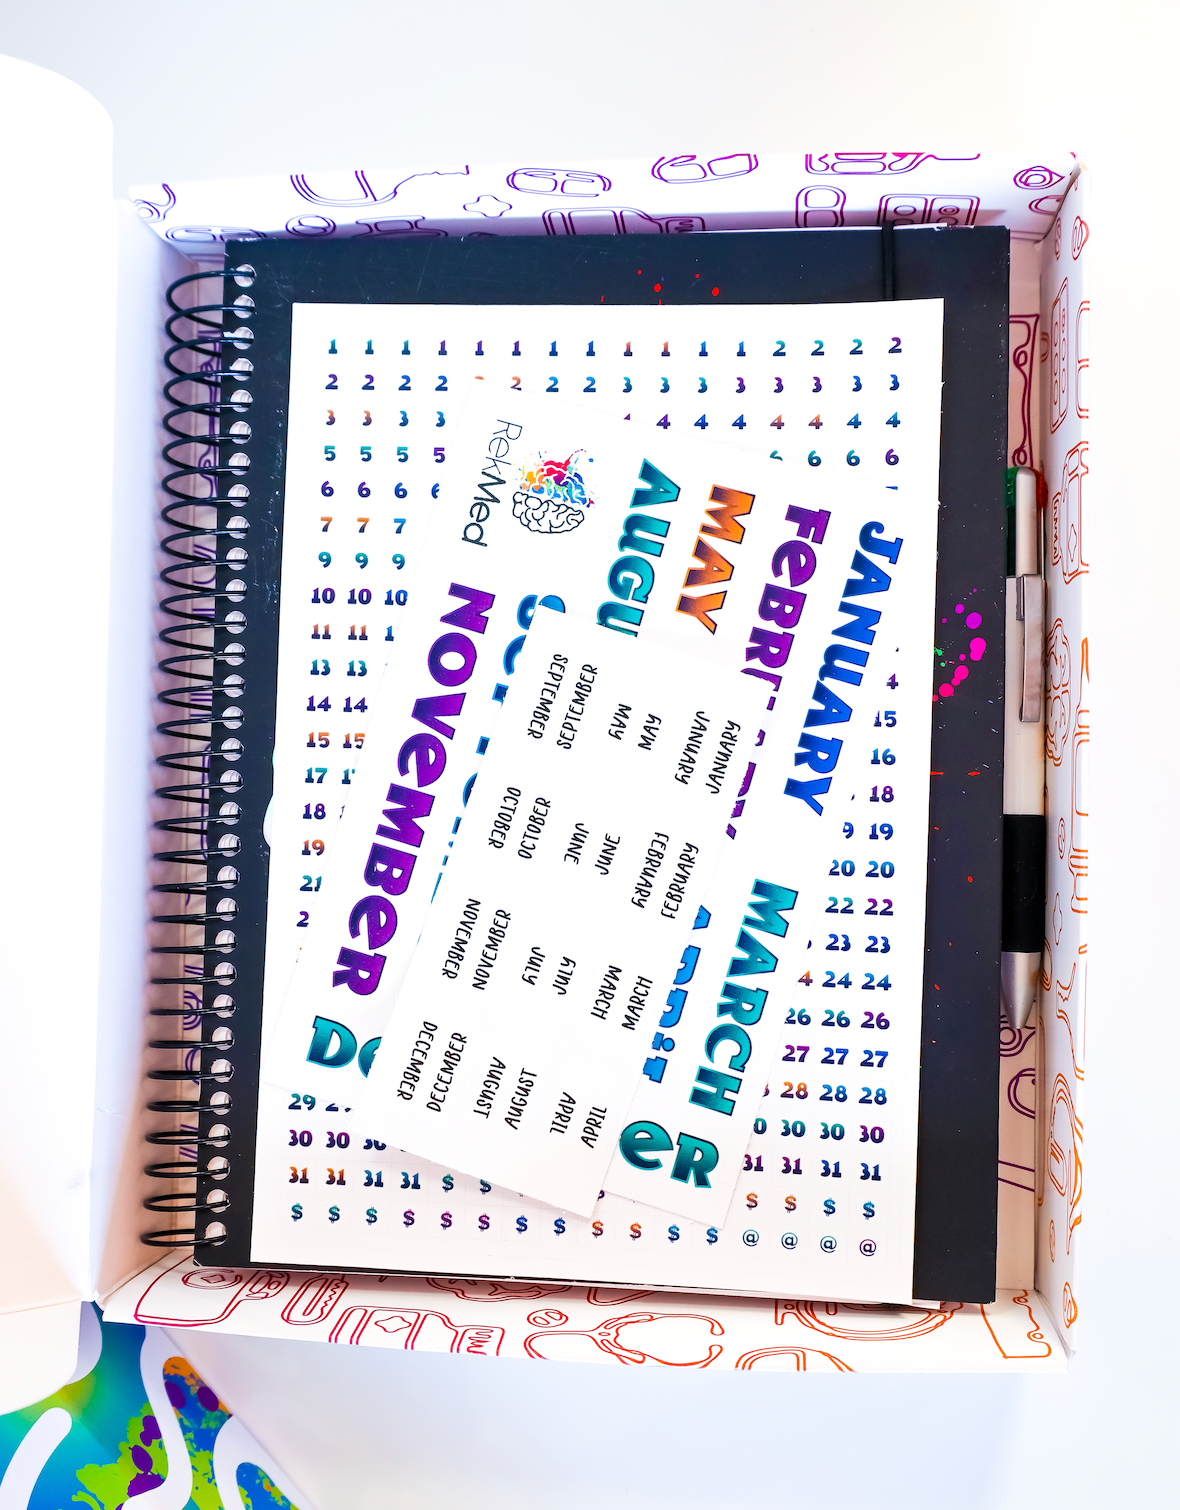 1 1 1 1 1 1 1 1 1 1 1 1 2 2 2 2
2 2 2 2 2 2 2 3 3 3 3 3 3 3 3
3 3 3 3 4 4 4 4 4 4 4
5 5 5 5 6 6 6
6 6 6 6
7 7 7
9 9 9
10 10 10
11 11 1
13 13
14 14 4
15 15 15
16
17 1
18 18
19 9 19
20 20
21 22 22
2 23 23
4 24 24
26 26 26
27 27 27
28 28 28
29 2 0 30 30 30
30 30 30 31 31 31 31
31 31 31 31 $ $ $ $ $ $
$ $ $ $ $ $ $ $ $ $ $ $ @ @ @ @
RekMed
JANUARY
FeBR
MAY
AUGU
MARCH
eR
APRiL
NOVeMBeR
De
JANUARY
JANUARY
FEBRUARY
FEBRUARY
MARCH
MARCH
APRIL
APRIL
MAY
MAY
JUNE
JUNE
JULY
JULY
AUGUST
AUGUST
SEPTEMBER
SEPTEMBER
OCTOBER
OCTOBER
NOVEMBER
NOVEMBER
DECEMBER
DECEMBER